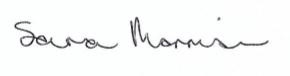 Sara Morris